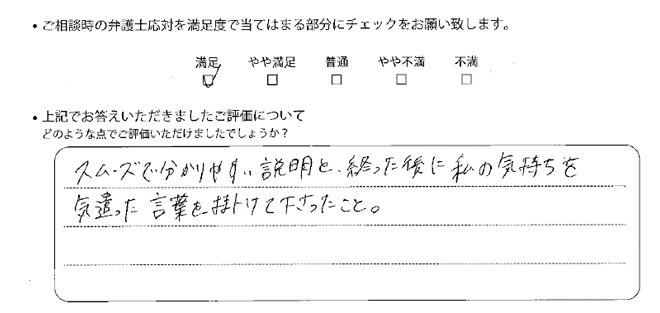 ・ご相談時の弁護士応対を満足度で当てはまる部分にチェックをお願い致します。
満足 やや満足 普通 やや不満 不満
・上記でお答えいただきましたご評価について
どのような点でご評価いただけましたでしょうか？
スムーズで分かりやすい説明と、終った後に私の気持ちを
気遣った言葉を掛けて下さったこと。